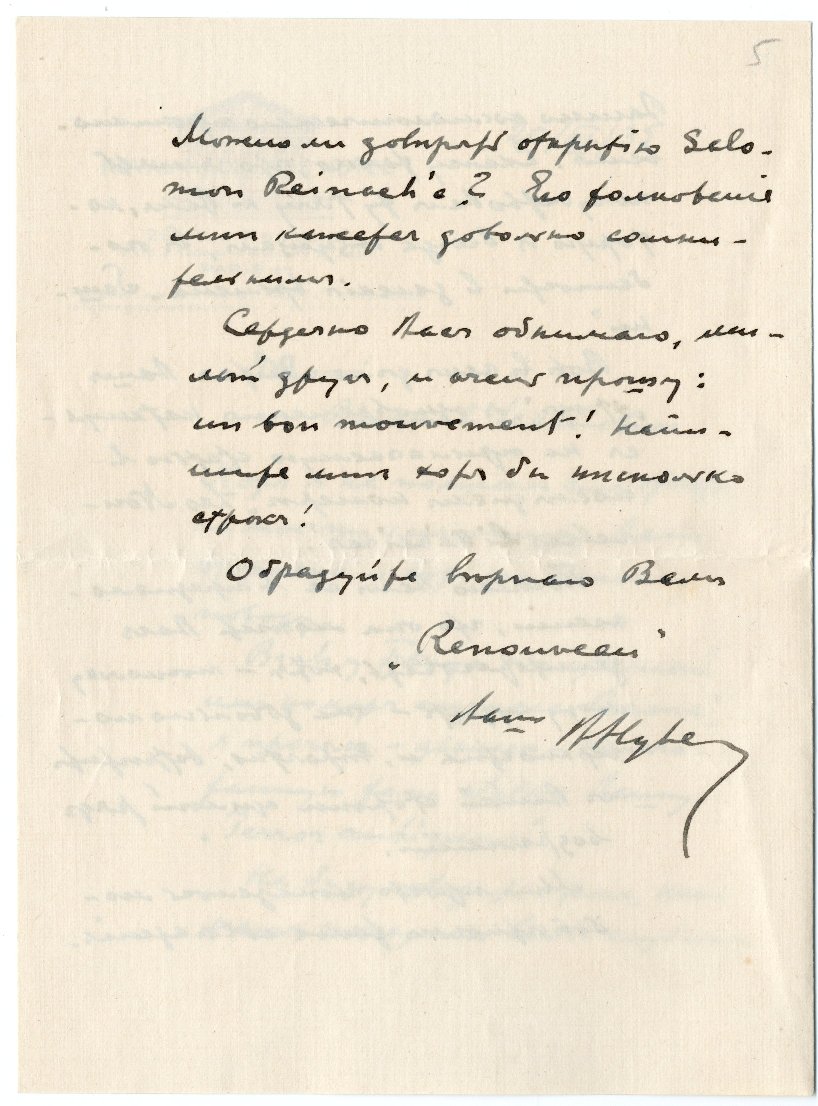 5
Можно ли довѣрять открытію Salo-
mon Reinach'а? Его толкованіе
мнѣ кажется довольно сомни-
тельнымъ.
Сердечно Васъ обнимаю, ми-
лый другъ, и очень прошу:
un bon mouvement! Напи-
шите мнѣ хотя бы нѣсколько
строкъ!
Обрадуйте вѣрнаго Вамъ
„Renouveau“
Вашъ